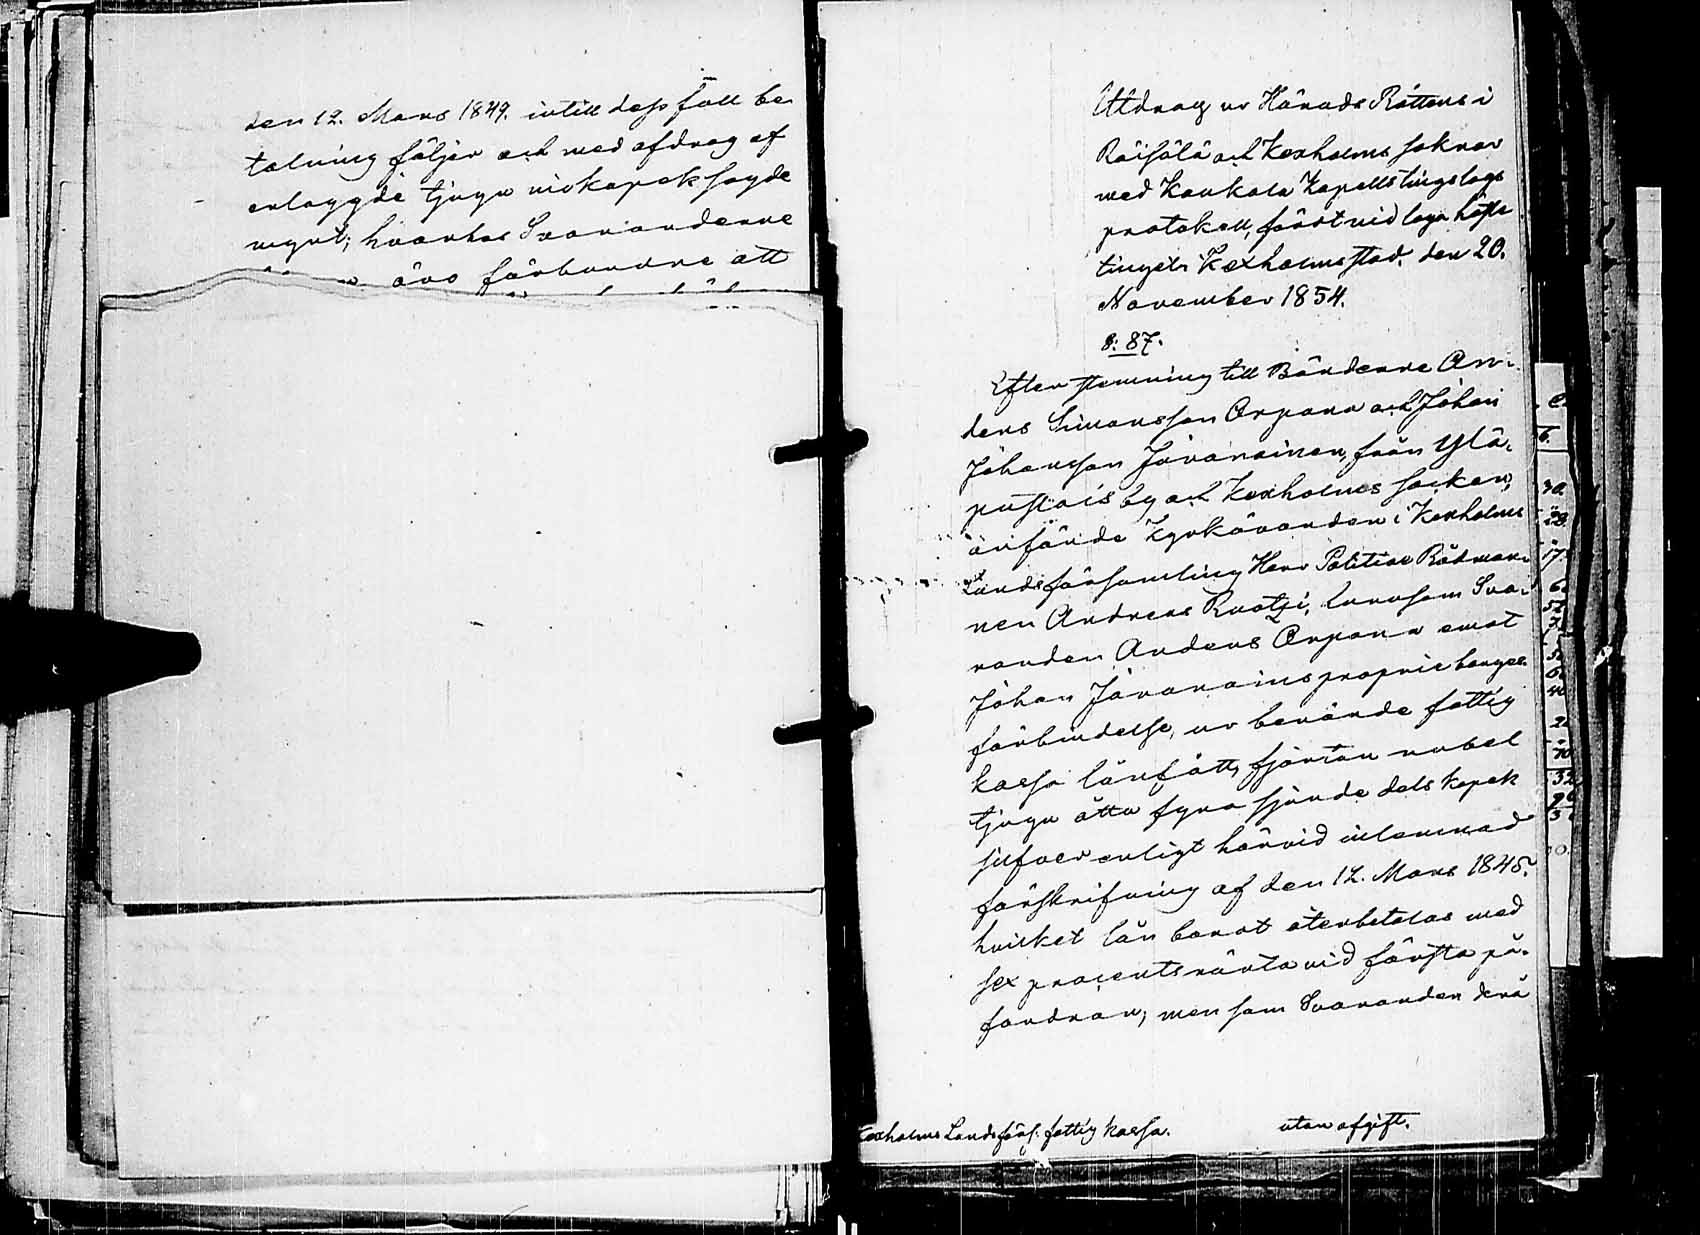 den 12. Mars 1849. intill dess full be-
talning följer och med afdrag af
erlaggde tjugu nio kopek sagde
mynt; hvarhos Svaranderne
äro förbundne att
Utdrag ur Härads Rättens i
Räisälä och Kexholms soknar
med Kaukola Kapells tingslags
protokoll, fördt vid laga höste
tinget i Kexholms stad, den 20.
November 1854.
§: 87.
Efter stemning till Bönderne An-
ders Simonsson Orpana och Johan
Johansson Jävanainen, från Ylä-
pustois by och Kexholms socken,
anförde Kyrkåvarden i Kexholms
Landsförsamling Herr Politie Rådman-
nen Andreas Ruotzi, hurusom Sva-
randen Anders Orpana emot
Johan Jävanains proprie borgens
förbindelse, ur berörde fattig
kassa lånfått fjorton rubel
tjugu åtta fyra sjunde dels kopek
silfver enligt härvid inlemnad
förskrifning af den 12. Mars 1845.
hvilket lån borat återbetalas med
sex procents ränta vid första på-
fordran; men som Svaranden derå
Kexholms Landsförs. fattig kassa.
utan afgift.